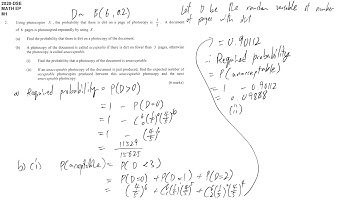 2020-DSE
MATH EP
M1
Dn B(6, 0.2)
Let D be the random variable of number of pages with dirt
2. Using photocopier X, the probability that there is dirt on a page of photocopy is 1/5. A document of 6 pages is photocopied repeatedly by using X.
(a) Find the probability that there is dirt on a photocopy of the document.
(b) A photocopy of the document is called acceptable if there is dirt on fewer than 3 pages, otherwise the photocopy is called unacceptable.
(i) Find the probability that a photocopy of the document is unacceptable.
(ii) If an unacceptable photocopy of the document is just produced, find the expected number of acceptable photocopies produced between this unacceptable photocopy and the next unacceptable photocopy.
(6 marks)
a) Required probability = P(D>0)
= 1 - P(D=0)
= 1 - C₀⁶(1/5)⁰(4/5)⁶
= 1 - (4/5)⁶
= 11529/15625
b) (i) P(acceptable) = P(D<3)
= P(D=0) + P(D=1) + P(D=2)
= (4/5)⁶ + C₁⁶(1/5)¹(4/5)⁵ + C₂⁶(1/5)²(4/5)⁴
= 0.90112
∴ Required probability
= P(unacceptable)
= 1 - 0.90112
= 0.09888
(ii)